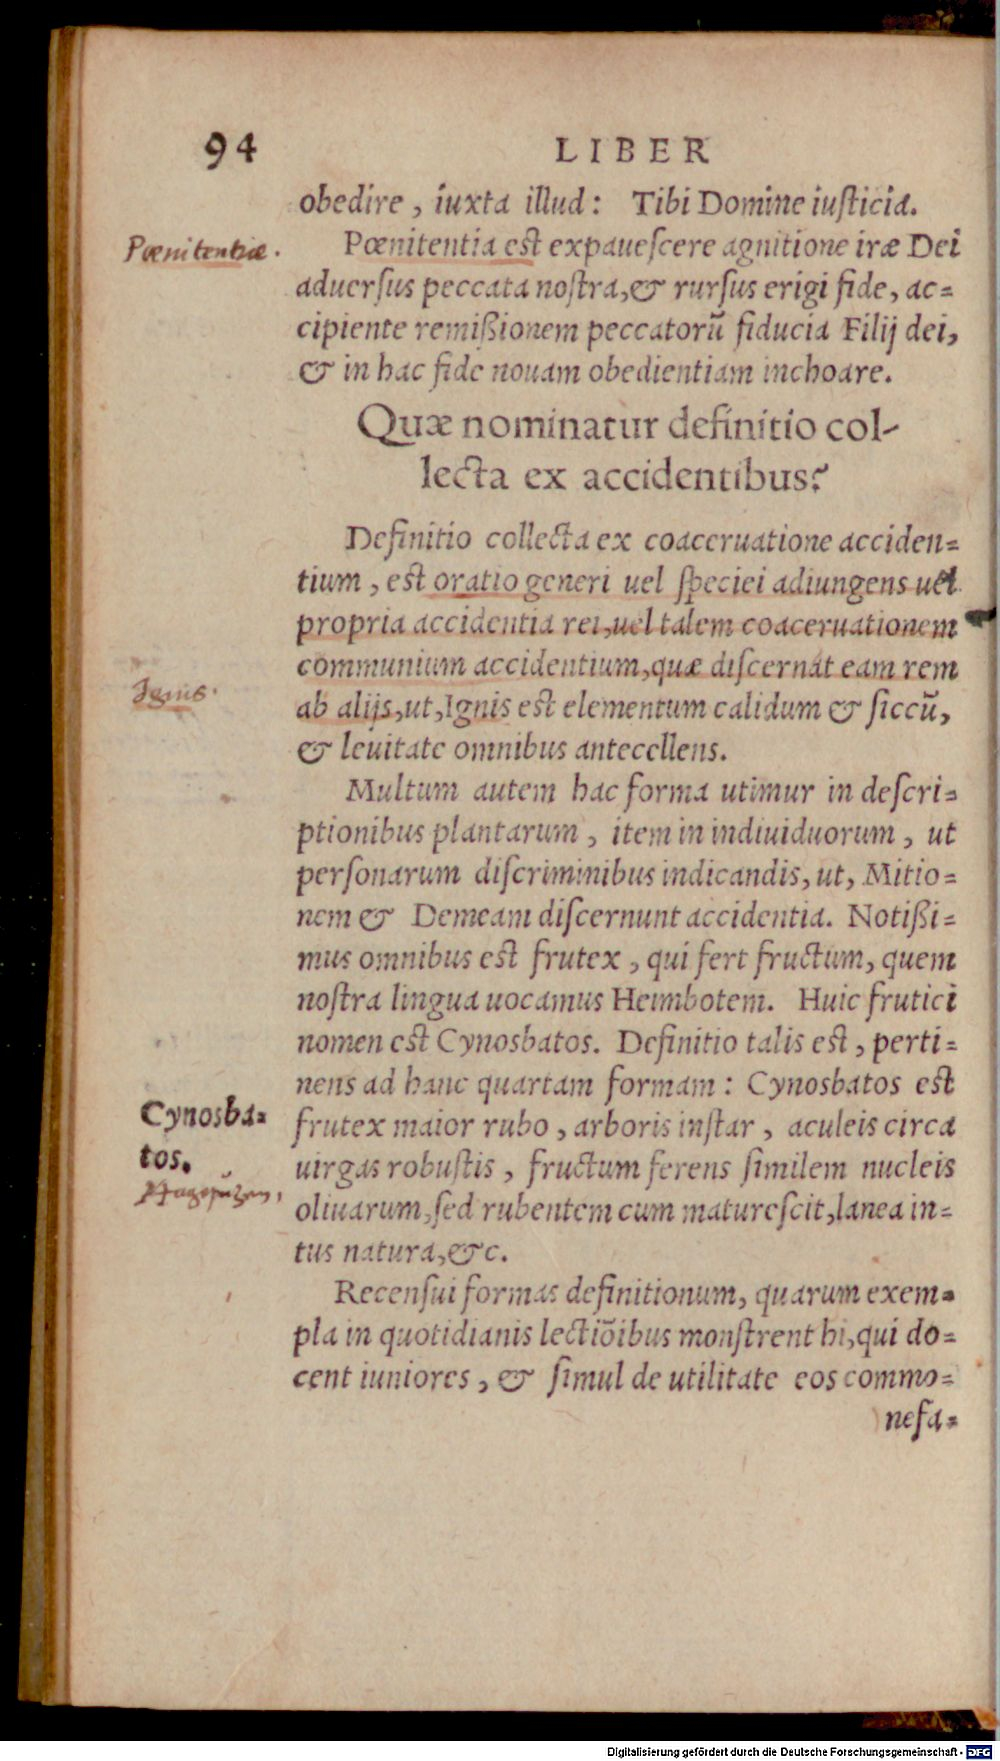 94 LIBER
obedire, iuxta illud: Tibi Domine iusticia.
Pœnitentiæ.
Pœnitentia est expauescere agnitione iræ Dei
aduersus peccata nostra, & rursus erigi fide, ac=
cipiente remißionem peccatorũ fiducia Filij dei,
& in hac fide nouam obedientiam inchoare.
Quæ nominatur definitio col-
lecta ex accidentibus?
Definitio collecta ex coaceruatione acciden=
tium, est oratio generi uel speciei adiungens uel
propria accidentia rei, uel talem coaceruationem
communium accidentium, quæ discernat eam rem
Ignis.
ab alijs, ut, Ignis est elementum calidum & siccũ,
& leuitate omnibus antecellens.
Multum autem hac forma utimur in descri=
ptionibus plantarum, item in indiuiduorum, ut
personarum discriminibus indicandis, ut, Mitio=
nem & Demeam discernunt accidentia. Notißi=
mus omnibus est frutex, qui fert fructum, quem
nostra lingua uocamus Heimbotem. Huic frutici
nomen est Cynosbatos. Definitio talis est, perti=
nens ad hanc quartam formam: Cynosbatos est
Cynosba=
tos.
frutex maior rubo, arboris instar, aculeis circa
uirgas robustis, fructum ferens similem nucleis
oliuarum, sed rubentem cum maturescit, lanea in=
tus natura, &c.
Recensui formas definitionum, quarum exem=
pla in quotidianis lectiõibus monstrent hi, qui do=
cent iuniores, & simul de utilitate eos commo=
nefa=
Digitalisierung gefördert durch die Deutsche Forschungsgemeinschaft - DFG